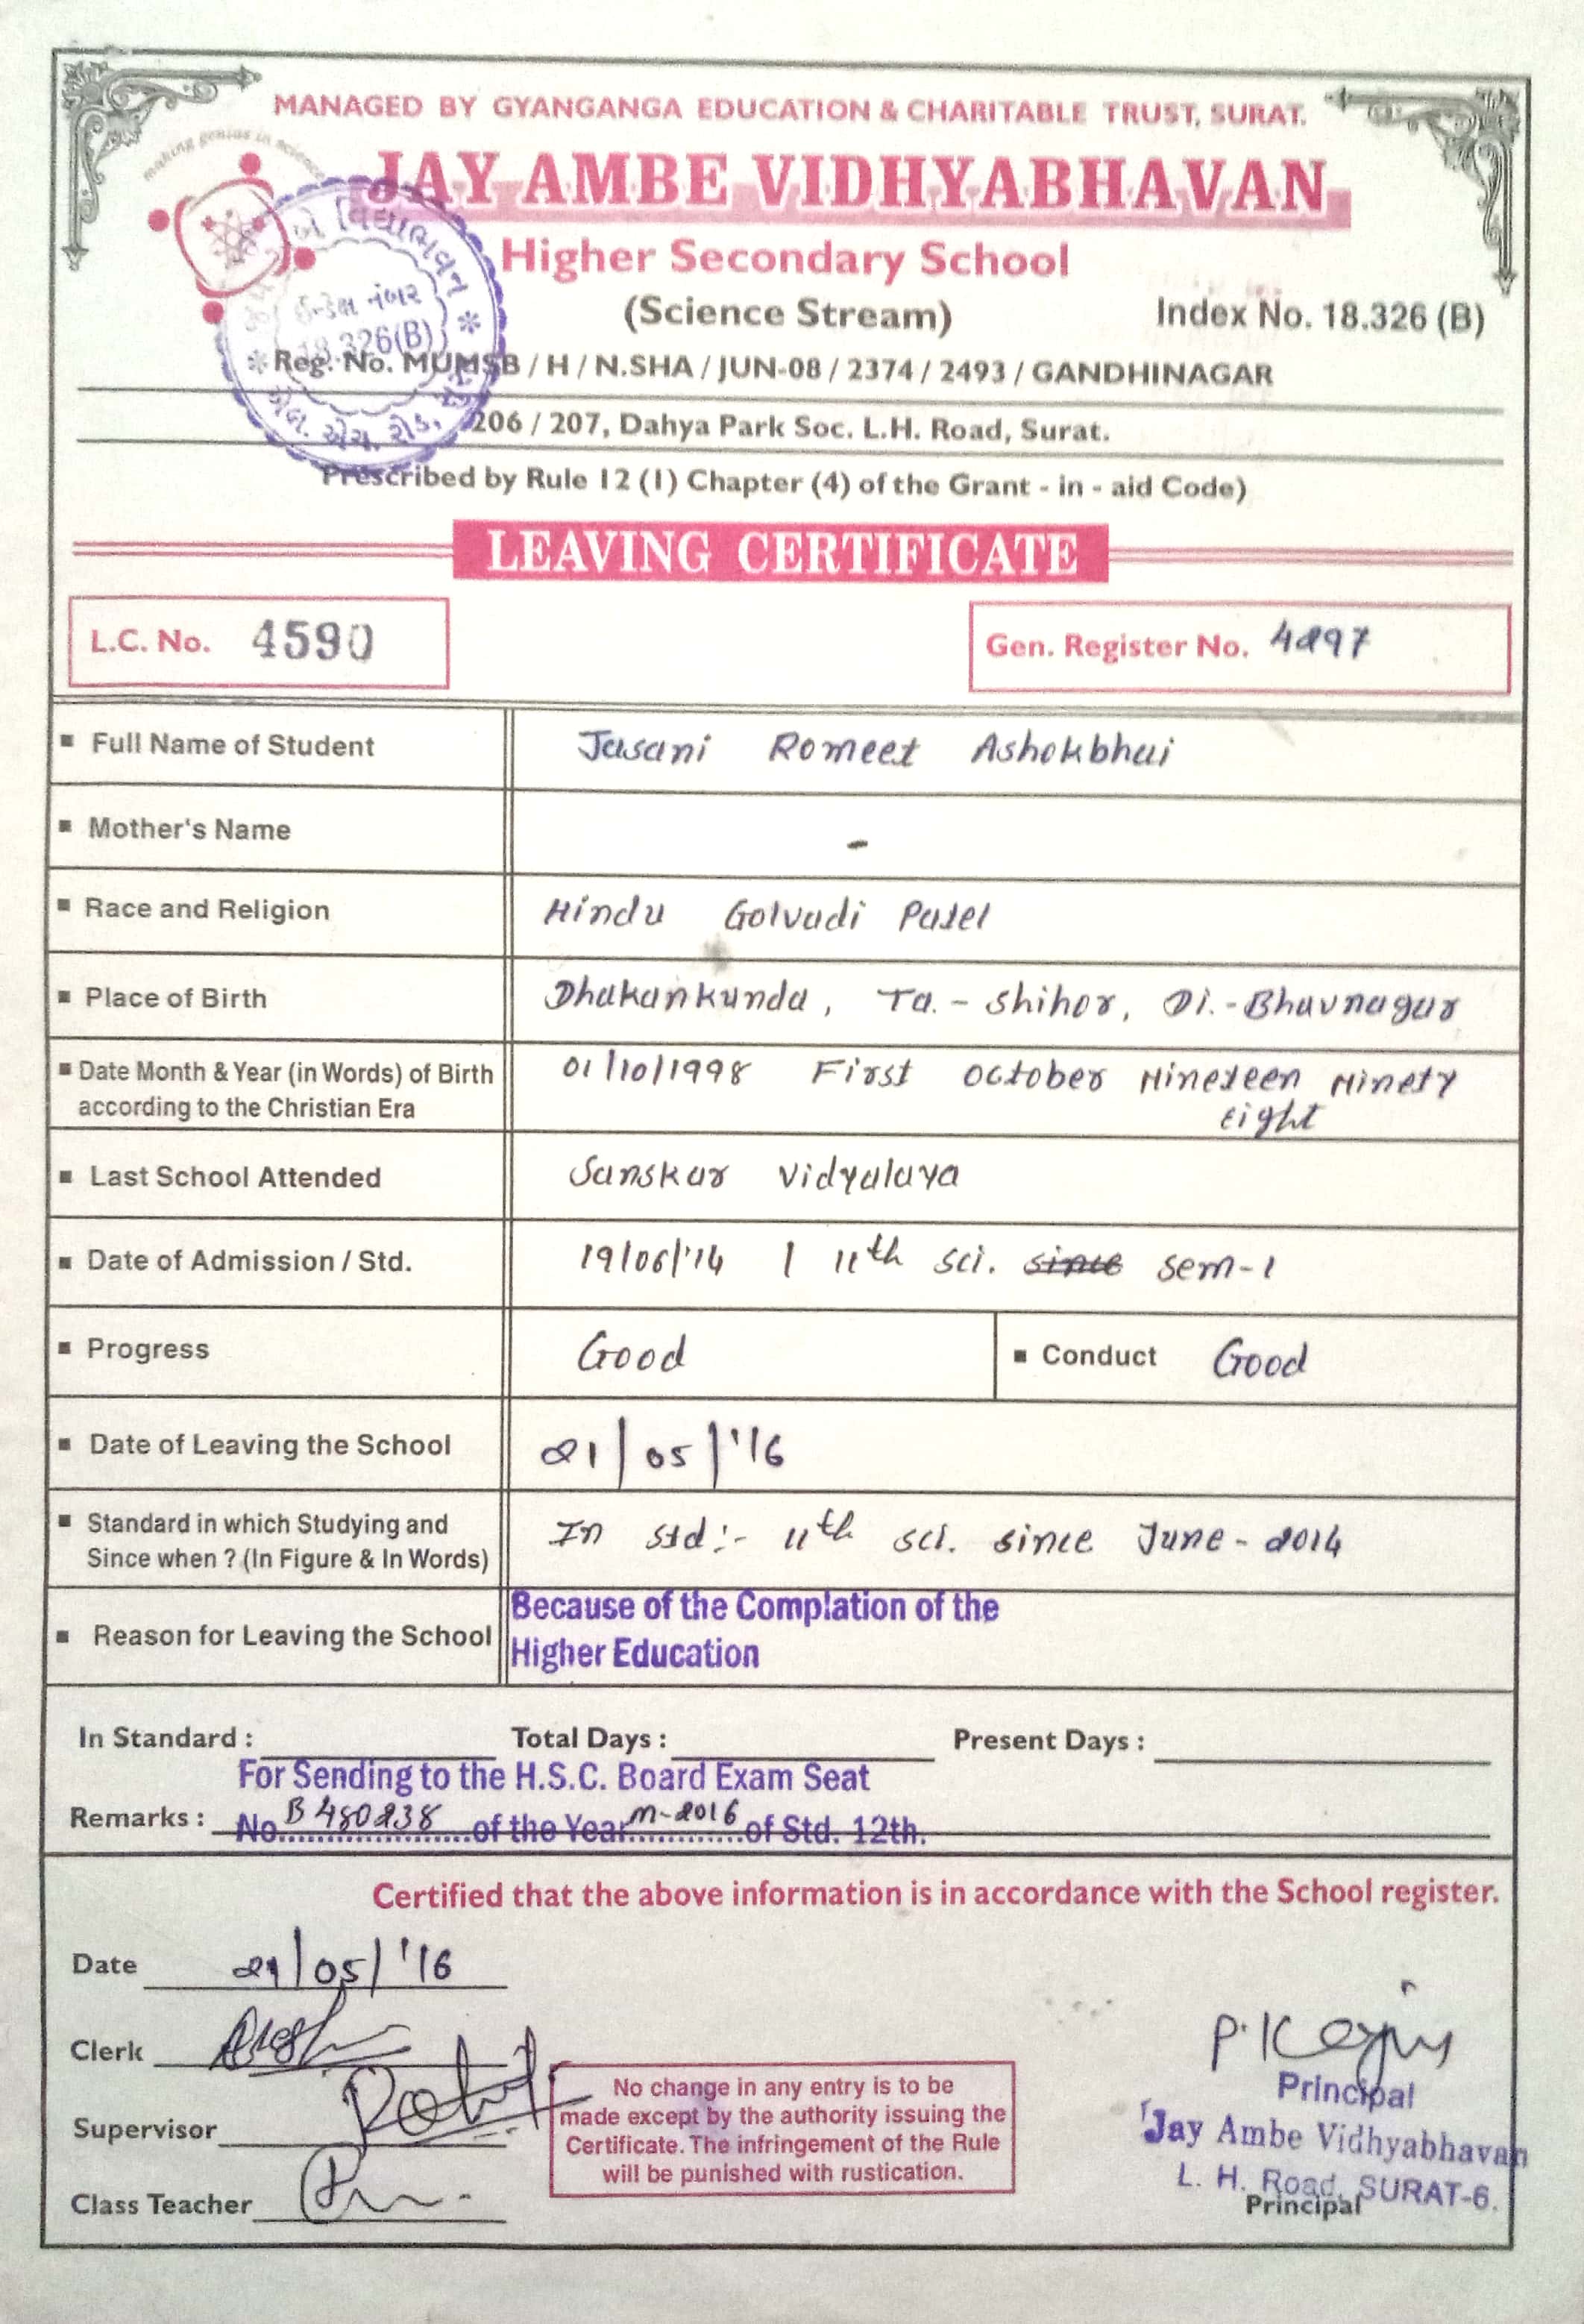 MANAGED BY GYANGANGA EDUCATION & CHARITABLE TRUST, SURAT.
making genius in science
JAY AMBE VIDHYABHAVAN
Higher Secondary School
(Science Stream)
Index No. 18.326 (B)
વિદ્યાભવન
ઈન્ડેક્ષ નંબર
18.326(B)
એલ. એચ. રોડ,
Reg. No. MUMSB / H / N.SHA / JUN-08 / 2374 / 2493 / GANDHINAGAR
206 / 207, Dahya Park Soc. L.H. Road, Surat.
Prescribed by Rule 12 (1) Chapter (4) of the Grant - in - aid Code)
LEAVING CERTIFICATE
L.C. No. 4590
Gen. Register No. 4297
Full Name of Student Jasani Romeet Ashokbhai
Mother's Name -
Race and Religion Hindu Golvadi Patel
Place of Birth Dhakankunda, Ta.- Shihor, Di.-Bhavnagar
Date Month & Year (in Words) of Birth according to the Christian Era 01/10/1998 First October Nineteen Ninety
eight
Last School Attended Sanskar Vidyalaya
Date of Admission / Std. 19/06/'14 | 11th sci. since sem-1
Progress Good Conduct Good
Date of Leaving the School 21/05/'16
Standard in which Studying and
Since when ? (In Figure & In Words) In Std:- 11th sci. since June-2014
Reason for Leaving the School Because of the Complation of the
Higher Education
In Standard : Total Days : Present Days :
For Sending to the H.S.C. Board Exam Seat
Remarks : No. B 480238 of the Year M-2016 of Std. 12th.
Certified that the above information is in accordance with the School register.
Date 21/05/'16
Clerk
Supervisor
Class Teacher
No change in any entry is to be
made except by the authority issuing the
Certificate. The infringement of the Rule
will be punished with rustication.
Principal
Jay Ambe Vidhyabhavan
L. H. Road, SURAT-6.
Principal